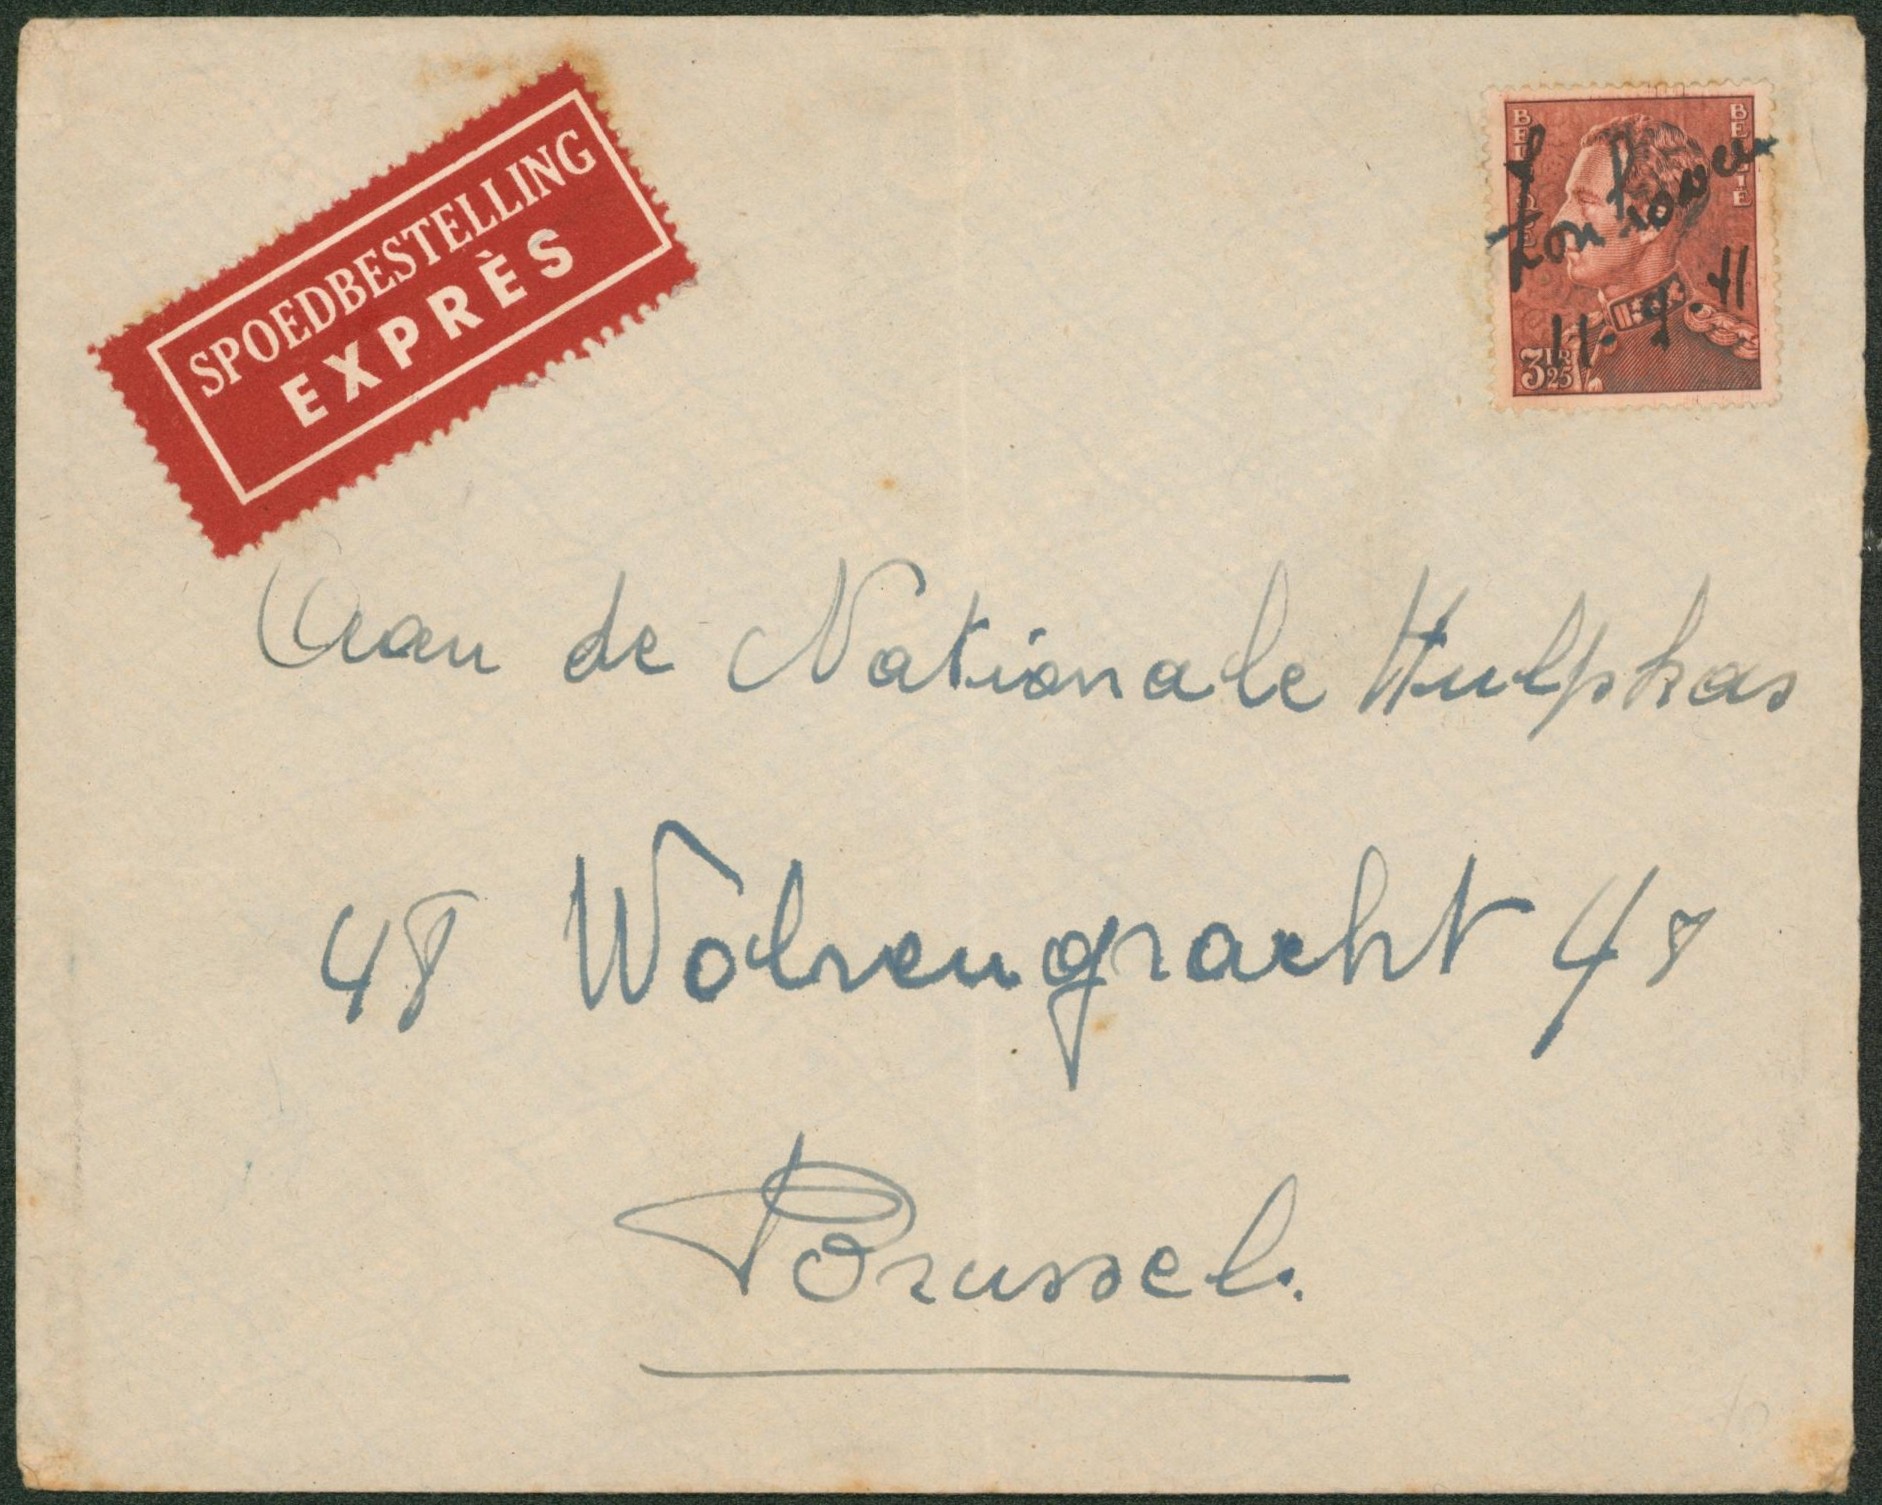 SPOEDBESTELLING
EXPRÈS
BELGIQUE
BELGIË
3F25
11.9.41
Aan de Nationale Hulpkas
48 Wolvengracht 48
Brussel.